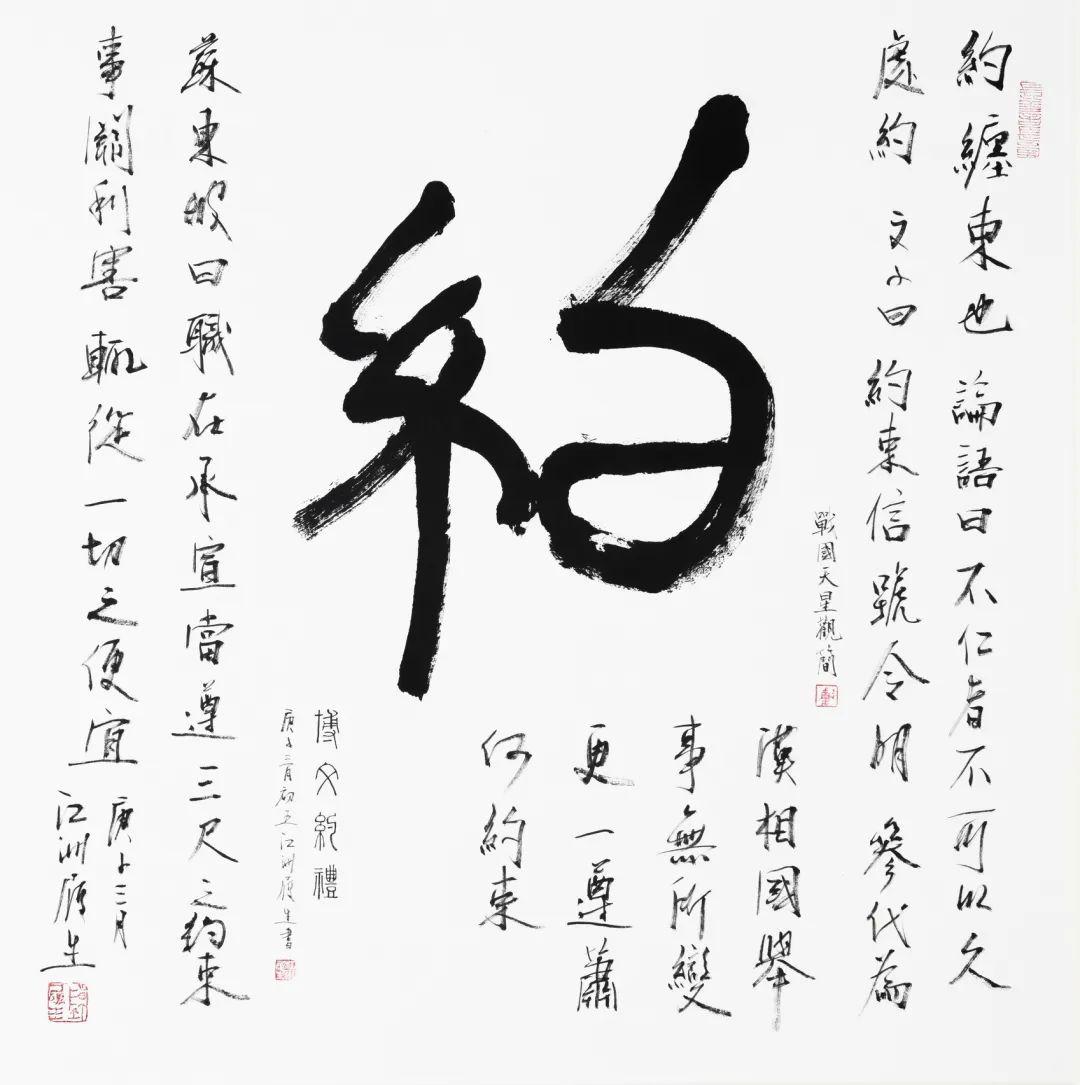 約纏束也 論語曰不仁者不可以久
處約 文子曰 約束信號令明 參代為
漢相國舉
事無所變
更一遵蕭
何約束
約
戰國天星觀簡
博文約禮
庚子三月初五江洲順生書
蘇東坡曰職在承宣當遵三尺之約束
事關利害輒從一切之便宜
庚子三月
江洲順生